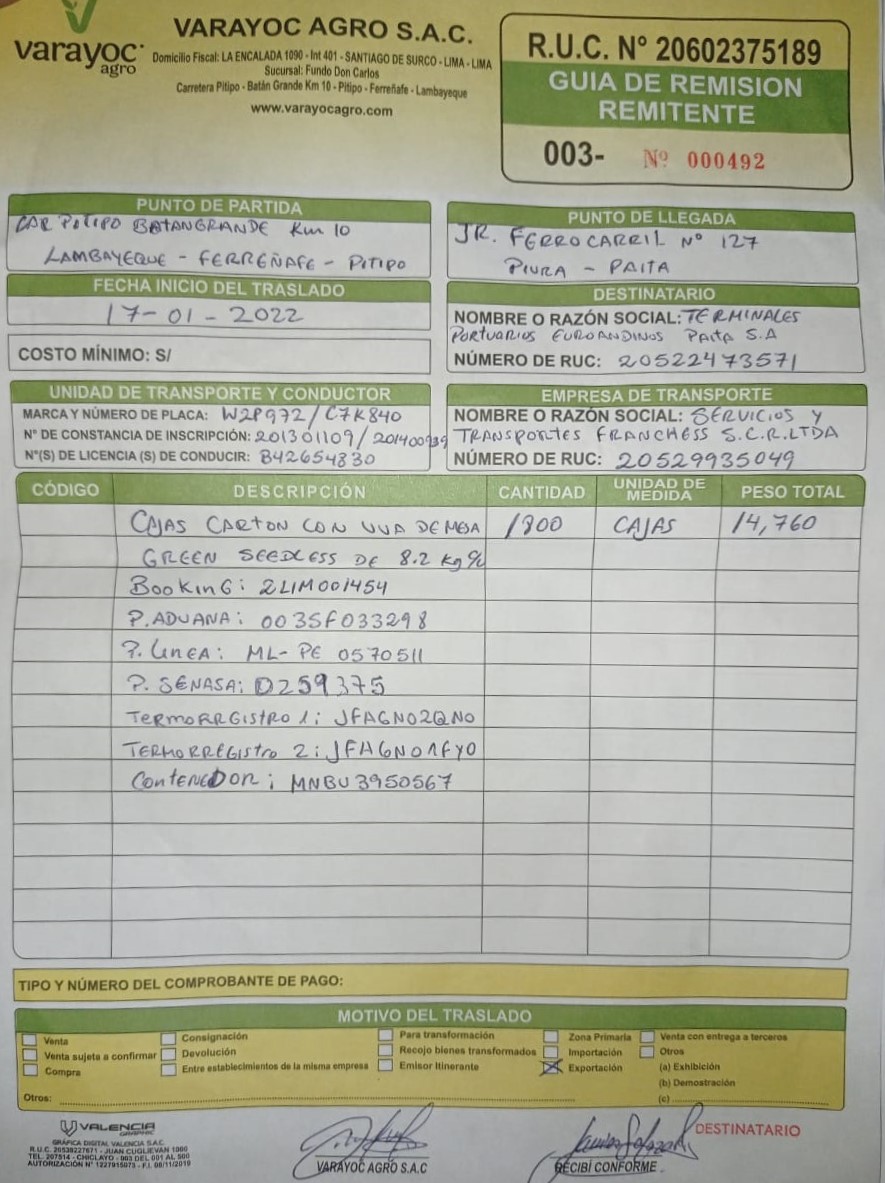 varayoc
agro
VARAYOC AGRO S.A.C.
Domicilio Fiscal: LA ENCALADA 1090 - Int 401 - SANTIAGO DE SURCO - LIMA - LIMA
Sucursal: Fundo Don Carlos
Carretera Pitipo - Batán Grande Km 10 - Pitipo - Ferreñafe - Lambayeque
www.varayocagro.com
R.U.C. N° 20602375189
GUIA DE REMISION
REMITENTE
003- Nº 000492
PUNTO DE PARTIDA
CAR PITIPO BATANGRANDE Km 10
LAMBAYEQUE - FERREÑAFE - PITIPO
PUNTO DE LLEGADA
JR. FERROCARRIL N° 127
PIURA - PAITA
FECHA INICIO DEL TRASLADO
17-01-2022
COSTO MÍNIMO: S/
DESTINATARIO
NOMBRE O RAZÓN SOCIAL: TERMINALES
PORTUARIOS EUROANDINOS PAITA S.A
NÚMERO DE RUC: 20522473571
UNIDAD DE TRANSPORTE Y CONDUCTOR
MARCA Y NÚMERO DE PLACA: W2P972/C7K840
N° DE CONSTANCIA DE INSCRIPCIÓN: 201301109/201400939
N°(S) DE LICENCIA (S) DE CONDUCIR: B42654830
EMPRESA DE TRANSPORTE
NOMBRE O RAZÓN SOCIAL: SERVICIOS Y
TRANSPORTES FRANCHESS S.C.R.LTDA
NÚMERO DE RUC: 20529935049
CÓDIGO DESCRIPCIÓN CANTIDAD UNIDAD DE MEDIDA PESO TOTAL
CAJAS CARTON CON UVA DE MESA 1800 CAJAS 14,760
GREEN SEEDLESS DE 8.2 Kg %
BOOKING: 2LIM001454
P. ADUANA: 0035F033298
P. LINEA: ML-PE 0570511
P. SENASA: D259375
TERMORRGISTRO 1: JFAGN02QN0
TERMORREGISTRO 2: JFAGN01FY0
CONTENEDOR: MNBU3950567
TIPO Y NÚMERO DEL COMPROBANTE DE PAGO:
MOTIVO DEL TRASLADO
Venta Consignación Para transformación Zona Primaria Venta con entrega a terceros
Venta sujeta a confirmar Devolución Recojo bienes transformados Importación Otros
Compra Entre establecimientos de la misma empresa Emisor Itinerante Exportación (a) Exhibición
(b) Demostración
Otros: (c)
VALENCIA
GRAPHIC
GRÁFICA DIGITAL VALENCIA S.A.C.
R.U.C. 20538227671 - JUAN CUGLIEVAN 1060
TEL. 207514 - CHICLAYO - 003 DEL 001 AL 500
AUTORIZACIÓN N° 1227915073 - F.I. 08/11/2019
VARAYOC AGRO S.A.C
RECIBÍ CONFORME
DESTINATARIO